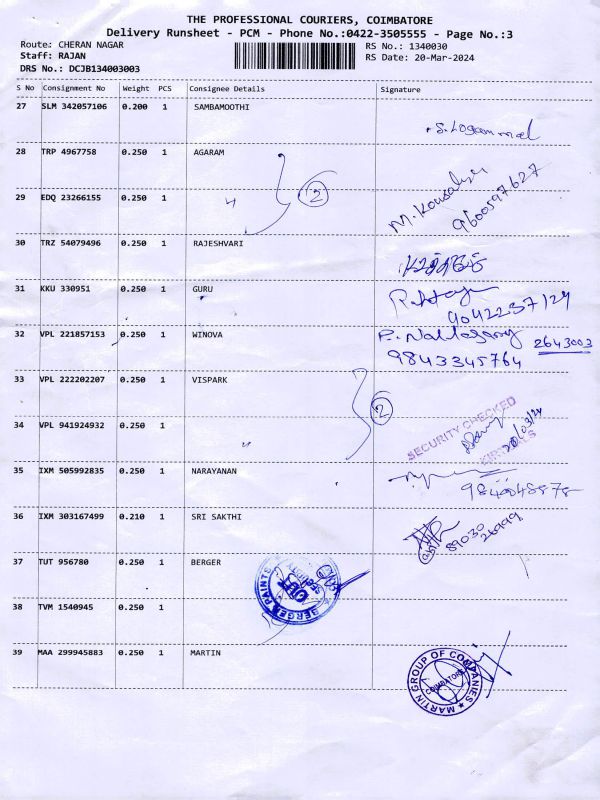 THE PROFESSIONAL COURIERS, COIMBATORE
Delivery Runsheet - PCM - Phone No.:0422-3505555 - Page No.:3
Route: CHERAN NAGAR RS No.: 1340030
Staff: RAJAN RS Date: 20-Mar-2024
DRS No.: DCJB134003003
S No Consignment No Weight PCS Consignee Details Signature
27 SLM 342057106 0.200 1 SAMBAMOOTHI
S. Logammal
28 TRP 4967758 0.250 1 AGARAM
29 EDQ 23266155 0.250 1 " 2 M. Kousalya
9600597627
30 TRZ 54079496 0.250 1 RAJESHVARI
31 KKU 330951 0.250 1 GURU
9042237124
32 VPL 221857153 0.250 1 WINOVA 2643003
9843345764
33 VPL 222202207 0.250 1 VISPARK
2
34 VPL 941924932 0.250 1 " SECURITY CHECKED
20/03/24
35 IXM 505992835 0.250 1 NARAYANAN
36 IXM 303167499 0.210 1 SRI SAKTHI
89030
26999
37 TUT 956780 0.250 1 BERGER
BERGER PAINTS
SECURITY
OUT
38 TVM 1540945 0.250 1
39 MAA 299945883 0.250 1 MARTIN
MARTIN GROUP OF COMPANIES
COIMBATORE